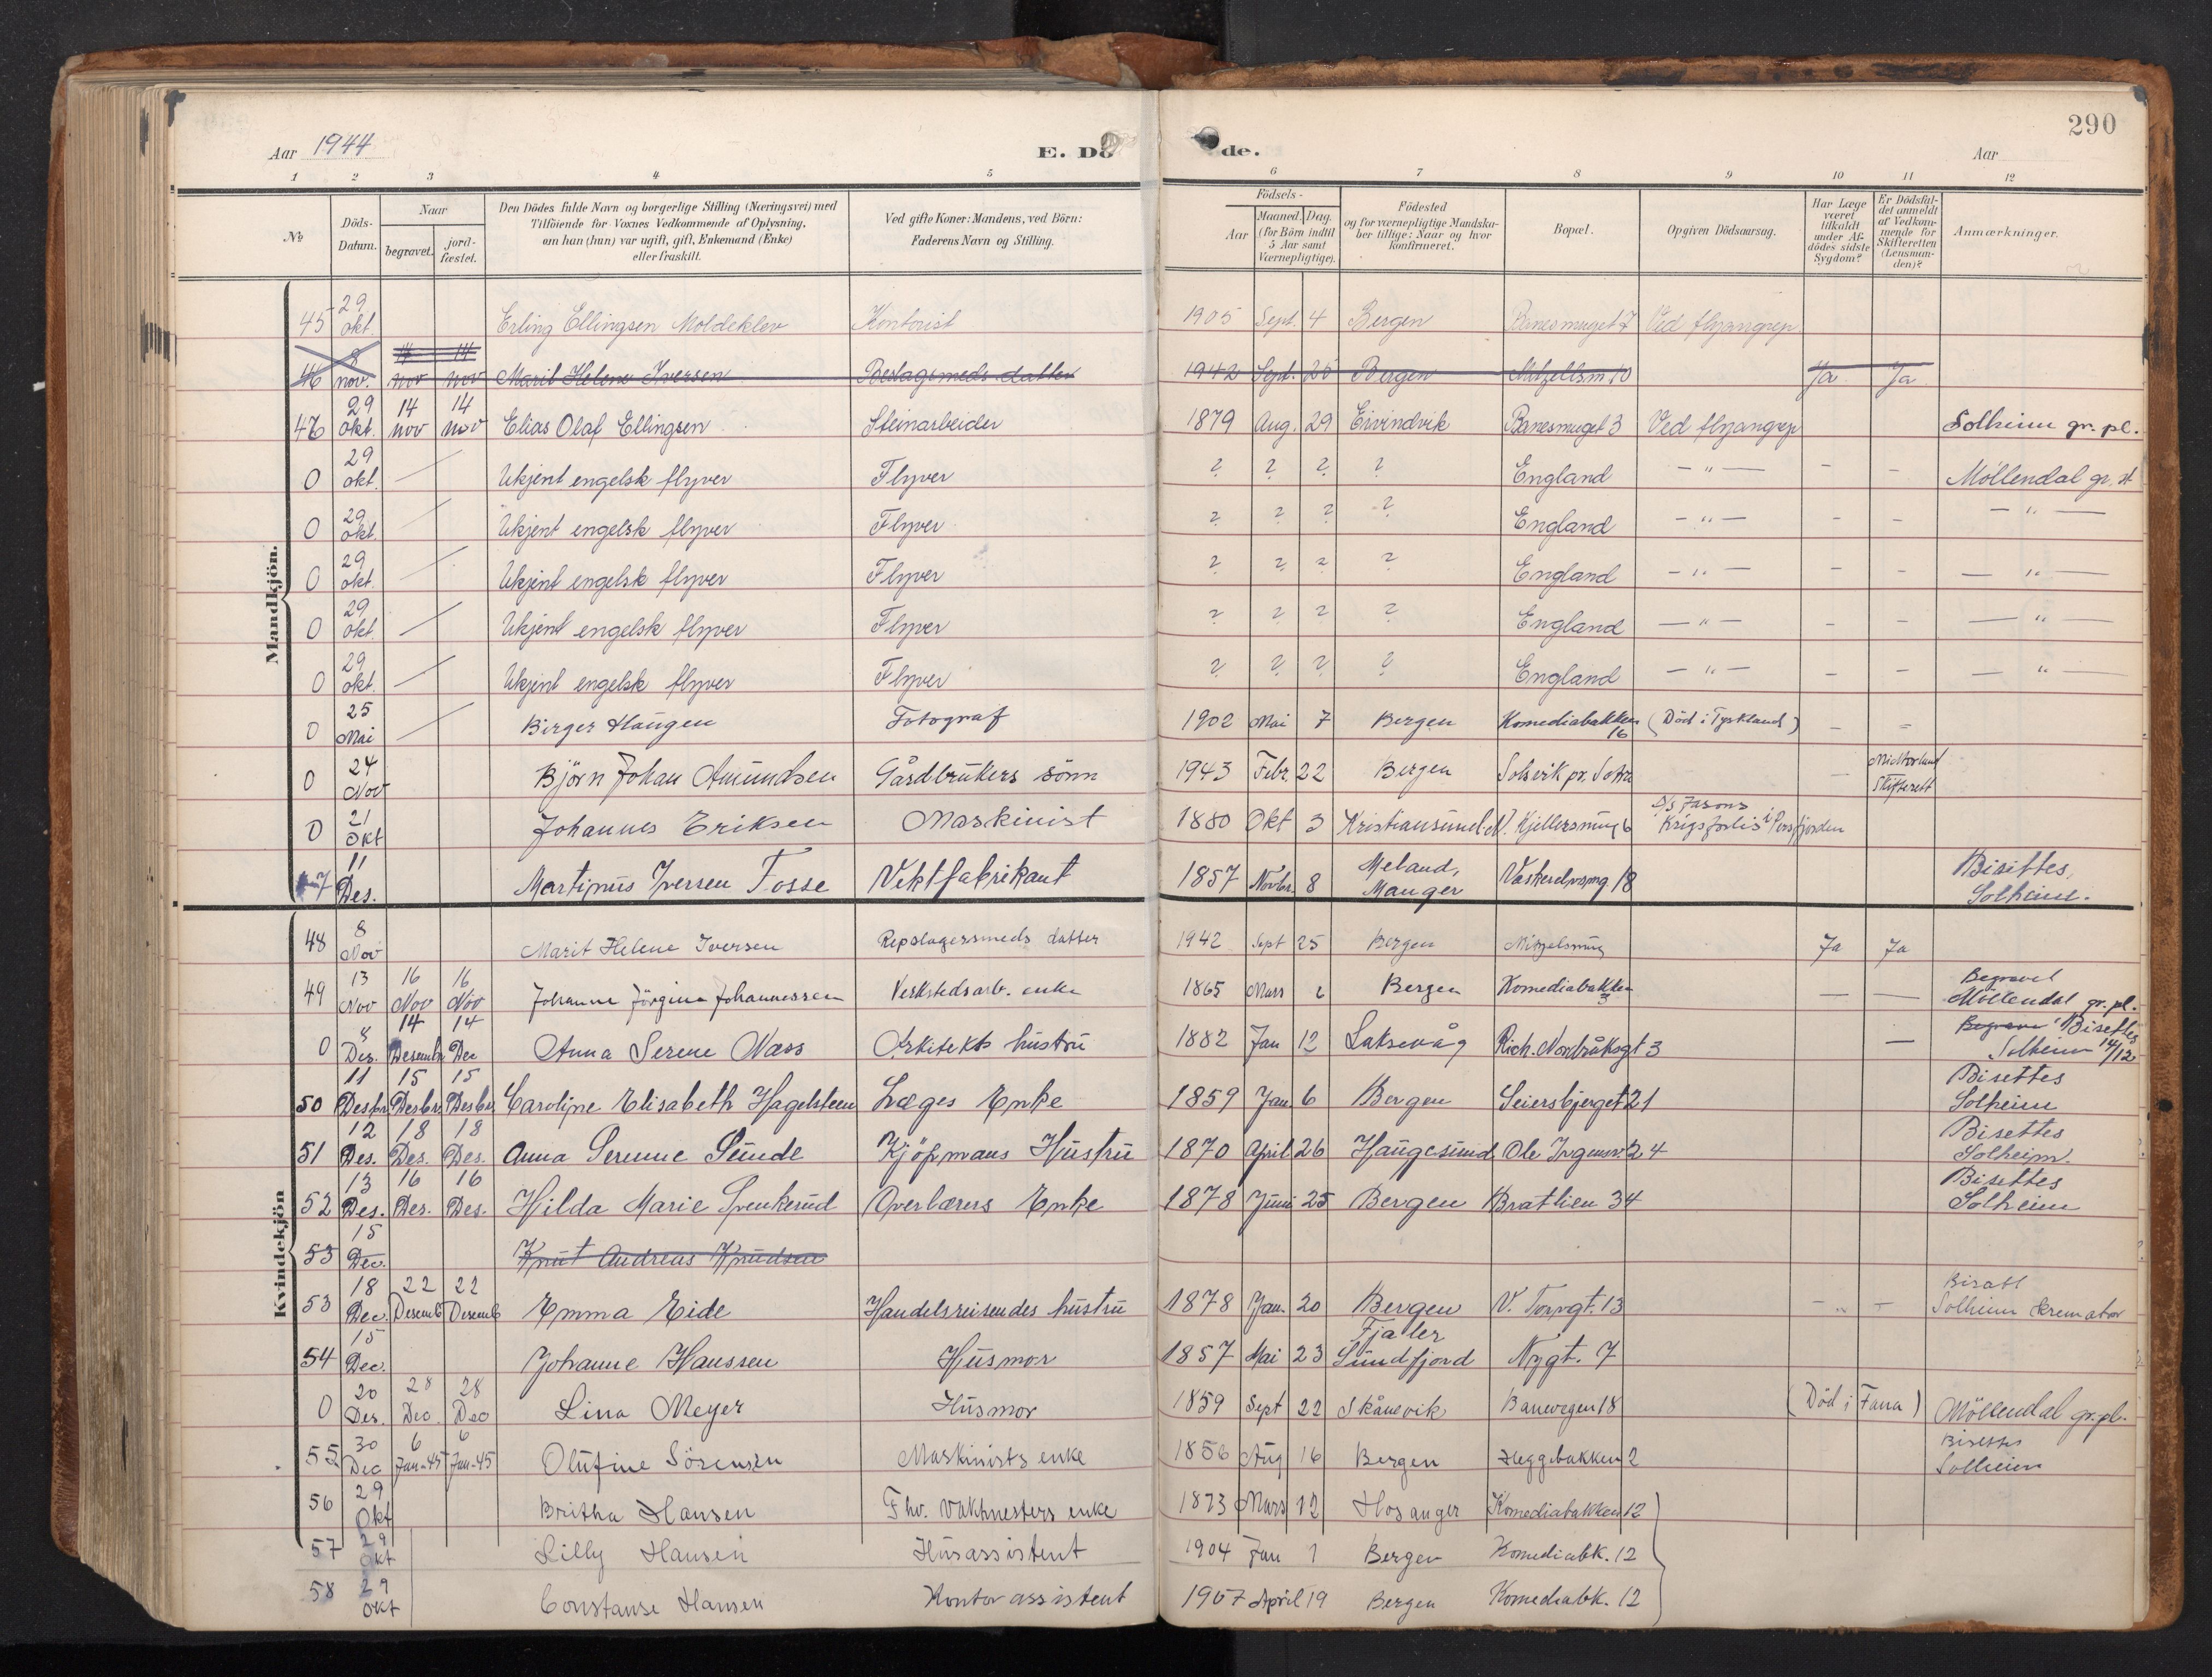 290
Aar 1944
E. Dø
de.
Aar
1 2 3 4 5 6 7 8 9 10 11 12
№
Döds-Datum.
Naar
begravet.
jord-fæstet.
Den Dödes fulde Navn og borgerlige Stilling (Næringsvei) med
Tilföiende for Voxnes Vedkommende af Oplysning,
om han (hun) var ugift, gift, Enkemand (Enke)
eller fraskilt.
Ved gifte Koner: Mandens, ved Börn:
Faderens Navn og Stilling.
Födsels-
Aar
Maaned. Dag.
(for Börn indtil
5 Aar samt
Værnepligtige).
Födested
og for værnepligtige Mandska-
ber tillige: Naar og hvor
konfirmeret.
Bopæl.
Opgiven Dödsaarsag.
Har Læge
været
tilkaldt
under Af-
dödes sidste
Sygdom?
Er Dödsfal-
det anmeldt
af Vedkom-
mende for
Skifteretten
(Lensman-
den)?
Anmærkninger.
Mandkjön.
45 29 okt. Erling Ellingsen Moldeklev Kontorist 1905 Sept. 4 Bergen 7 Ved flyangrep
46 8 nov. 14 nov 14 nov Marit Helene Iversen datter 1942 Sept. 25 Bergen 10 Ja Ja
46 29 okt. 14 nov 14 nov Elias Olaf Ellingsen Steinarbeider 1879 Aug. 29 Eivindvik 3 Ved flyangrep Solheim gr. pl.
0 29 okt. — Ukjent engelsk flyver Flyver ? ? ? ? England — " — - - Möllendal gr. pl
0 29 okt. Ukjent engelsk flyver Flyver ? ? ? ? England — " — - - — " —
0 29 okt. — Ukjent engelsk flyver Flyver ? ? ? ? England — " — - - — " —
0 29 okt. — Ukjent engelsk flyver Flyver ? ? ? ? England — " — - - — " —
0 29 okt. — Ukjent engelsk flyver Flyver ? ? ? ? England — " — - - — " —
0 25 Mai — Birger Haugen Fotograf 1902 Mai 7 Bergen Komediabakken 16 (Död i Tyskland) - -
0 24 Nov Björn Johan Amundsen Gårdbrukers sönn 1943 Febr. 22 Bergen Solsvik pr. Sotra — Midthorland Skifterett
0 21 Okt Johannes Eriksen Maskinist 1880 Okt 3 Kristiansund N. 6 Krigsforlis i
47 11 Des. Martinus Iversen Fosse Vektfabrikant 1857 Novbr. 8 Meland, Manger 18 Bisettes, Solheim.
Kvindekjön
48 8 Nov Marit Helene Iversen Repslagersmeds datter 1942 Sept 25 Bergen Ja Ja
49 13 Nov 16 Nov 16 Nov Johanne Jörgine Johannessen Verkstedsarb. enke 1865 Mars 6 Bergen Komediabakken 3 — — Begravet Möllendal gr. pl.
0 8 Des. 14 Desemb 14 Dec Anna Serene Næss Arkitekts hustru 1882 Jan 12 Laksevåg Rich. Nordråksgt 3 — Bisettes Solheim 14/12
50 11 Desbr 15 Desbr 15 Desbr Caroline Elisabeth Hagelsteen Læges Enke 1859 Jan 6 Bergen Seiersbjerget 21 Bisettes Solheim
51 12 Des. 18 Des. 18 Des. Anna Serine Sunde Kjöpmans Hustru 1870 April 26 Haugesund 24 Bisettes Solheim.
52 13 Des. 16 Des. 16 Des. Hilda Marie Svenkerud Overlærers Enke 1878 Juni 25 Bergen Bratlien 34 Bisettes Solheim
53 15 Dec. Knut Andreas Knudsen
53 18 Dec. 22 Desemb 22 Desemb Emma Eide Handelsreisendes hustru 1878 Jan. 20 Bergen V. Torvgt. 13 Bisatt Solheim kremator
54 15 Dec. Johanne Hanssen Husmor 1857 Mai 23 Fjaler Sundfjord Nygt. 7
0 20 Des. 28 Dec. 28 Dec Lina Meyer Husmor 1859 Sept 22 Skånevik Banevegen 18 (Död i Fana) Möllendal gr. pl.
55 30 Dec 6 Jan-45 6 Jan-45 Olufine Sörensen Maskinists enke 1856 Aug 16 Bergen Heggebakken 2 Bisettes Solheim
56 29 Okt Britha Hansen Fhv. Vaktmesters enke 1873 Mars 12 Hosanger Komediabakken 12
57 29 Okt Lilly Hansen Husassistent 1904 Jan 1 Bergen Komediabk. 12
58 29 okt Constanse Hansen Kontorassistent 1907 April 19 Bergen Komediabk. 12